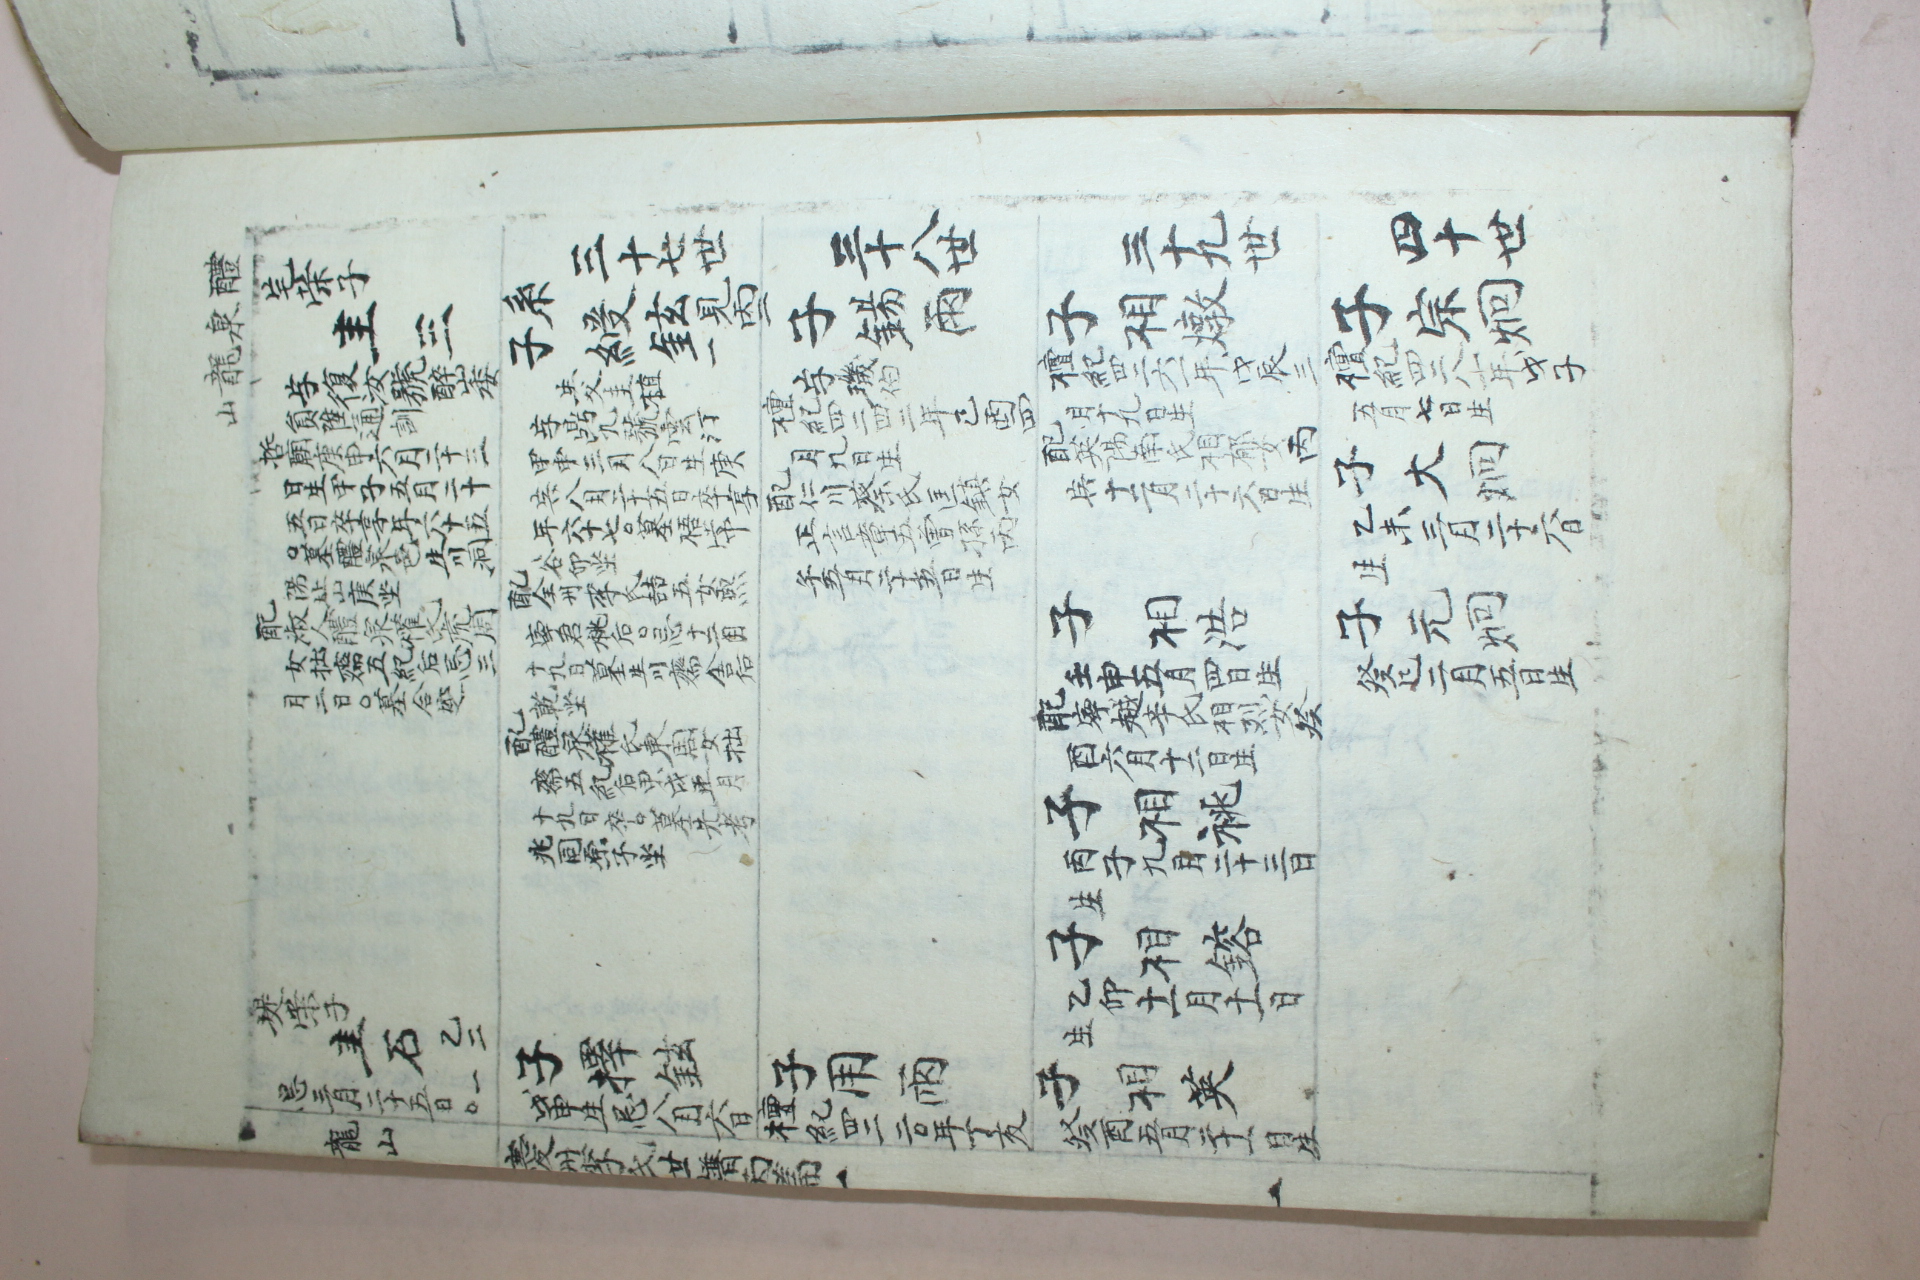 醴泉龍山
宅榮子
圭三
字復汝號醉山委
貟陞通訓
哲廟庚申六月二十三
日生甲子五月二十
五日卒享年六十五
○墓醴泉邑生川洞
陽山庚坐
配淑人醴泉權氏虎周
女拙齋五紀后忌三
月二日○墓合窆
堤榮子
圭石 乙二一
忌三月二十五日○
龍山
三十七世
系子綬鉉 見丙二一
生父圭植
字鼎九號雲汀
甲申三月八日生庚
年六十七○墓梧
谷卯坐
配全州李氏喆五女熙
寧君后○忌十二月
十九日墓生川齋舍后
乾坐
配醴泉權氏東周女拙
齋五紀后甲戌正月
十九日卒○墓先考
兆同原子坐
子擇鉉
戊申生忌八月六日
三十八世
子錫雨
字璣伯
檀紀四二四二年己酉四
月九日生
配仁川蔡氏匡鎮女
正言章五曾孫丙
午五月二十五日生
子用雨
檀紀四二二○年丁亥
三十九世
子相燉
檀紀四二六一年戊辰三
月十九日生
配英陽南氏相郁女丙
寅十二月二十六日生
子相浩
壬申五月四日生
配寧越辛氏相烈女癸
酉六月十二日生
子相祧
丙子九月二十三日
生
子相鎔
乙卯十一月十一日
生
子相英
癸酉五月二十一日生
四十世
子宗炯
檀紀四二八一年戊子
五月七日生
子大炯
乙未三月二十六日
生
子元炯
癸巳二月五日生
慶州李氏世譜丙篇一